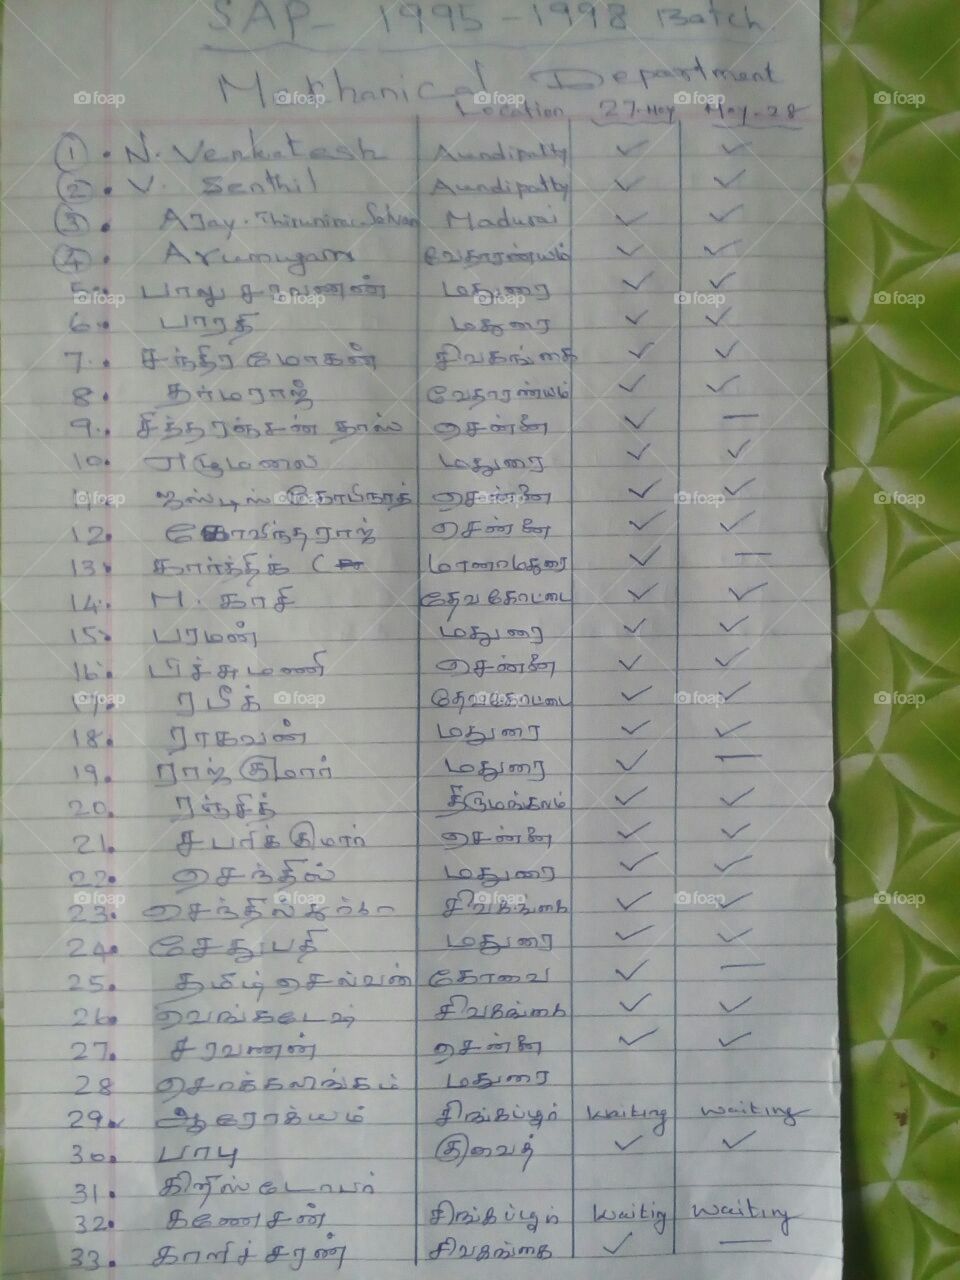 SAP - 1995 - 1998 Batch
Mechanical Department
Location 27-May May-28
1. N. Venkatesh Aundipatty ✓ ✓
2. V. Senthil Aundipatty ✓ ✓
3. Ajay. Madurai ✓ ✓
4. Arumugam வேதாரண்யம் ✓ ✓
5. பாலு சரவணன் மதுரை ✓ ✓
6. பாரதி மதுரை ✓ ✓
7. சந்திர மோகன் சிவகங்கை ✓ ✓
8. தர்மராஜ் வேதாரண்யம் ✓ ✓
9. சித்தரஞ்சன் தாஸ் சென்னை ✓ —
10. ஏழுமலை மதுரை ✓ ✓
11. ஜஸ்டிஸ் கோபிநாத் சென்னை ✓ ✓
12. கோவிந்தராஜ் சென்னை ✓ ✓
13. கார்த்திக் ( மானாமதுரை ✓ —
14. M. காசி தேவகோட்டை ✓ ✓
15. பரமன் மதுரை ✓ ✓
16. பிச்சுமணி சென்னை ✓ ✓
17. ரபீக் தேவகோட்டை ✓ ✓
18. ராகவன் மதுரை ✓ ✓
19. ராஜ் குமார் மதுரை ✓ —
20. ரஞ்சித் திருமங்கலம் ✓ ✓
21. சபரிக் குமார் சென்னை ✓ ✓
22. செந்தில் மதுரை ✓ ✓
23. செந்தில் சிவகங்கை ✓ ✓
24. சேதுபதி மதுரை ✓ ✓
25. தமிழ் செல்வன் கோவை ✓ —
26. வெங்கடேஷ் சிவகங்கை ✓ ✓
27. சரவணன் சென்னை ✓ ✓
28 சொக்கலிங்கம் மதுரை
29. ஆரோக்யம் சிங்கப்பூர் Waiting Waiting
30. பாபு குவைத் ✓ ✓
31. கிறிஸ்டோபர்
32. கணேசன் சிங்கப்பூர் Waitig Waiting
33. காளிச்சரண் சிவகங்கை ✓ —